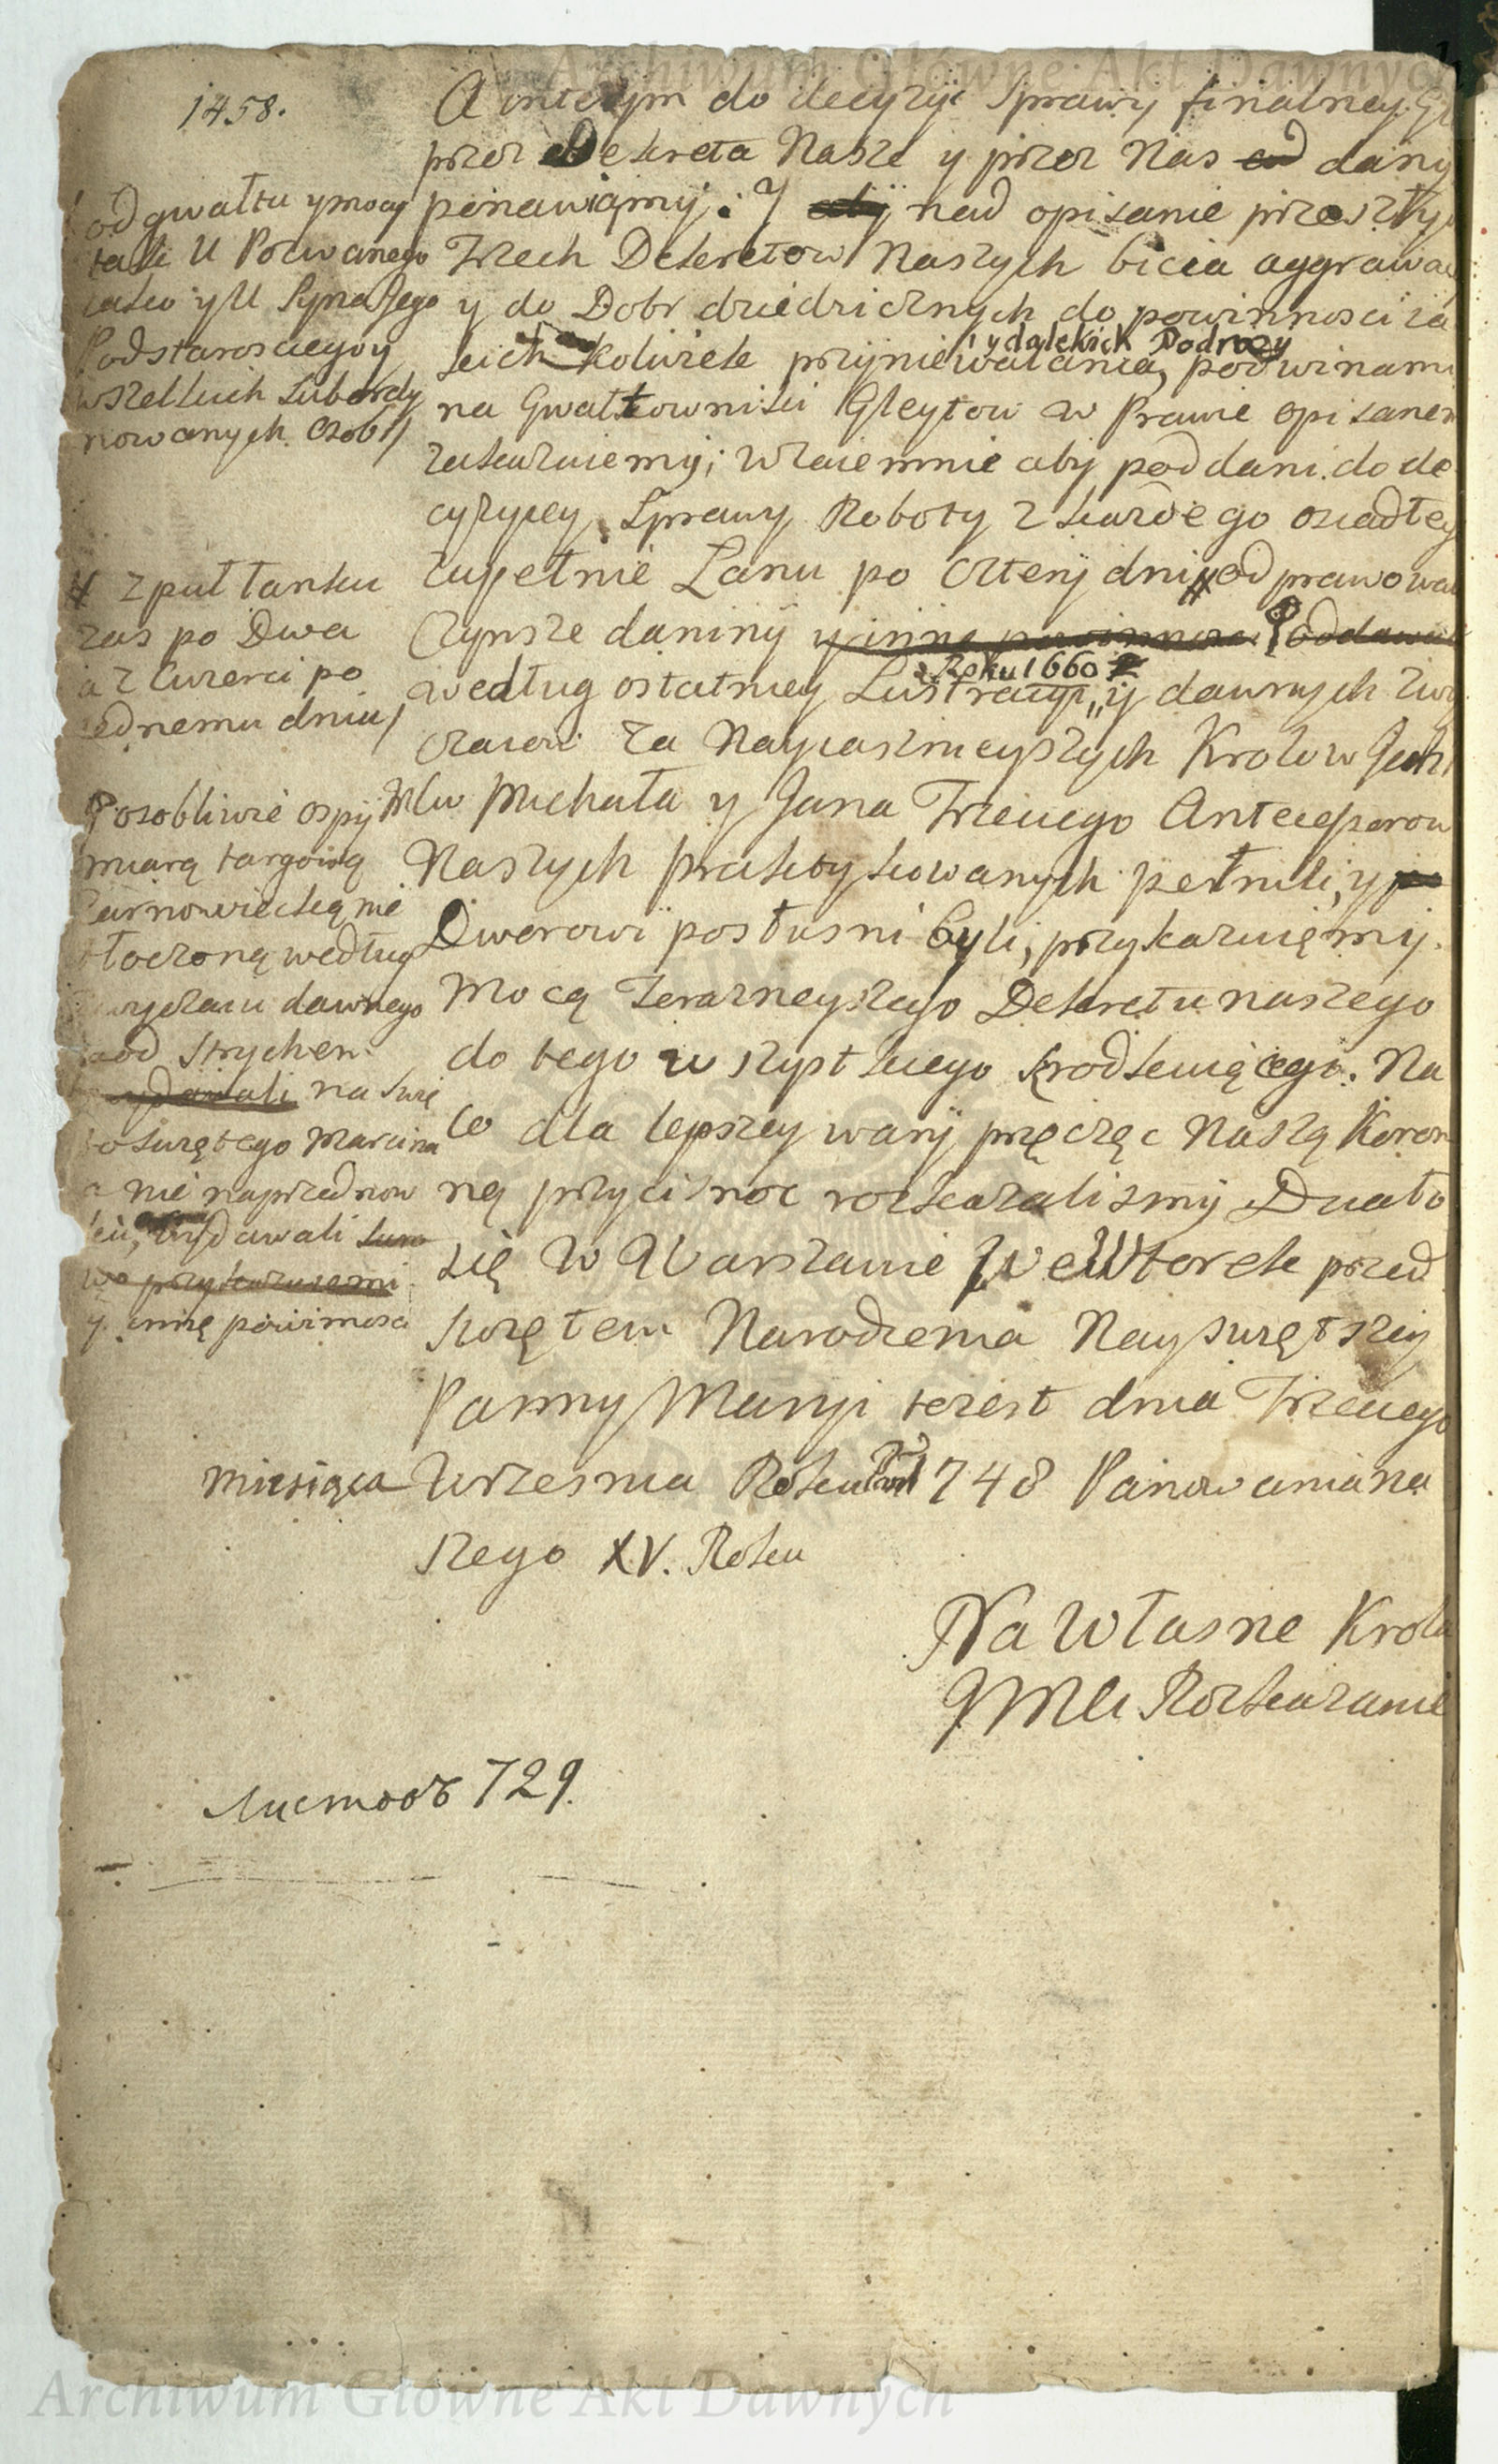 1458.
A interym do decyzyi Sprawy finalney
przez Dekreta Nasze y przez Nas dany
ponawiamy: Y nad opisanie przeszłych
Trzech Dekretow Naszych bicia aggrawacyi
y do Dobr dziedzicznych do powinnosci ia
kich kolwiek przyniewalania,
y dalekich Podrozy
pod winami
na Gwałtownikow Gleytow w Prawie opisanemi
zakazuiemy; wzaiemnie aby poddani do de
cyzyiey Sprawy Roboty z kazdego osiadłego
zupełnie Łanu po cztery dni odprawowali
Czynsze daniny y inne powinnosci oddawali
według ostatniey Lustracyi y dawnych zwy
Roku 1660
czaiow za Nayiasnieyszych Krolow Ich
Mciow Michała y Jana Trzeciego Antecessorow
Naszych praktykowanych pełnili, y
Dworowi posłuszni byli, przykazuiemy.
Mocą Terazneyszego Dekretu naszego
do tego wszystkiego srodkuiącego. Na
co dla lepszey wary pięczęc Naszą Koron
ną przycisnąc rozkazalismy Działo
się w Warszawie we Wtorek przed
swiętem Narodzenia Nayswiętszey
Panny Maryi to iest dnia Trzeciego
miesiąca Wrzesnia Roku 1748 Panowania na
szego XV. Roku
Na Własne Krola
JMci Rozkazanie
od gwałtu y mocy
tak U Pozwanego
iako y U Syna Jego
Podstarosciego y
wszelkich subordy
nowanych Osob
# z puł łanku
zas po Dwa
a z cwierci po
iednemu dniu
osobliwie ospy
miarą targową
Tarnowiecką nie
tłoczoną według
zwyczaiu dawnego
pod strychem
wydawali na swię
to swiętego Marcina
a nie na przednow
ku, wydawali
przykazuiemi
y inne powinnosci
Листовъ 729.
Archiwum Główne Akt Dawnych
Archiwum Główne Akt Dawnych